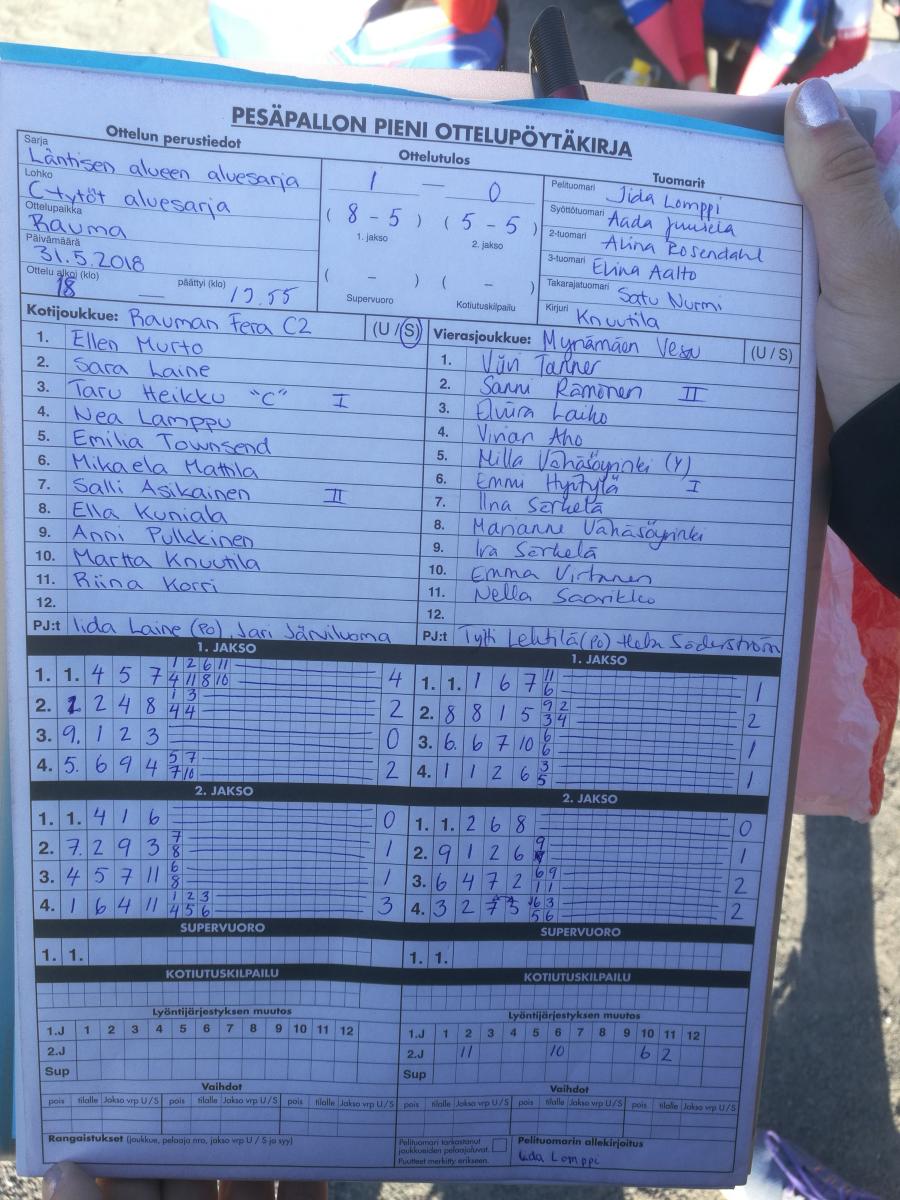 PESÄPALLON PIENI OTTELUPÖYTÄKIRJA
Ottelun perustiedot
Sarja
Läntisen alueen aluesarja
Lohko
C-tytöt aluesarja
Ottelupaikka
Rauma
Päivämäärä
31.5.2018
Ottelu alkoi (klo) päättyi (klo)
18 — 19.55
Ottelutulos
1 — 0
( 8 - 5 ) ( 5 - 5 )
1. jakso 2. jakso
( - ) ( - )
Supervuoro Kotiutuskilpailu
Tuomarit
Pelituomari Iida Lomppi
Syöttötuomari Aada Juusela
2-tuomari Alina Rosendahl
3-tuomari Elina Aalto
Takarajatuomari Satu Nurmi
Kirjuri Knuutila
Kotijoukkue: Rauman Fera C2 (U / S)
1. Ellen Murto
2. Sara Laine
3. Taru Heikku "C" I
4. Nea Lamppu
5. Emilia Townsend
6. Mikaela Mattila
7. Salli Asikainen II
8. Ella Kuniala
9. Anni Pulkkinen
10. Martta Knuutila
11. Riina Korri
12.
PJ:t Iida Laine (PO) Jari Järviluoma
Vierasjoukkue: Mynämäen Vesa (U / S)
1. Viivi Tanner
2. Sanni Rämönen II
3. Elviira Laiho
4. Aho
5. Milla Vähäsöyrinki (Y)
6. Emmi I
7. Iina Serkelä
8. Marianne Vähäsöyrinki
9. Serkelä
10. Emma Virtanen
11. Nella Saarikko
12.
PJ:t Tytti Lehtilä (PO) Söderström
1. JAKSO
1. 1. 4 5 7 1 2 6 11 4
4 11 8 10
2. 1 2 4 8 1 3 2
4 4
3. 9. 1 2 3 0
4. 5. 6 9 4 5 7 2
7 10
1. JAKSO
1. 1. 1 6 7 11 1
6
2. 8 8 1 5 9 2 2
3 4
3. 6. 6 7 10 6 1
6
4. 1 1 2 6 3 1
5
2. JAKSO
1. 1. 4 1 6 0
2. 7. 2 9 3 7 1
8
3. 4 5 7 11 6 1
8
4. 1 6 4 11 1 2 3 3
4 5 6
2. JAKSO
1. 1. 2 6 8 0
2. 9 1 2 6 9 1
3. 6 4 7 2 6 9 2
1 1
4. 3 2 7 5 6 3 2
5 6
SUPERVUORO
1. 1.
SUPERVUORO
1. 1.
KOTIUTUSKILPAILU
KOTIUTUSKILPAILU
Lyöntijärjestyksen muutos
1.J 1 2 3 4 5 6 7 8 9 10 11 12
2.J
Sup
Lyöntijärjestyksen muutos
1.J 1 2 3 4 5 6 7 8 9 10 11 12
2.J 11 10 6 2
Sup
Vaihdot
pois tilalle Jakso vrp U / S pois tilalle Jakso vrp U / S pois tilalle Jakso vrp U / S
Vaihdot
pois tilalle Jakso vrp U / S pois tilalle Jakso vrp U / S pois tilalle Jakso vrp U / S
Rangaistukset (joukkue, pelaaja nro, jakso vrp U / S ja syy)
Pelituomari tarkastanut
joukkueiden pelaajaluvat.
Puutteet merkitty erikseen.
Pelituomarin allekirjoitus
Iida Lomppi